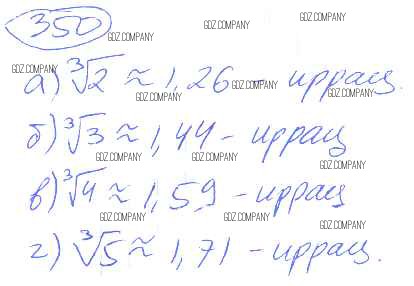 350
GDZ.COMPANY GDZ.COMPANY GDZ.COMPANY
а) ∛2 ≈ 1,26 - иррац.
GDZ.COMPANY GDZ.COMPANY GDZ.COMPANY GDZ.COMPANY
б) ∛3 ≈ 1,44 - иррац
GDZ.COMPANY GDZ.COMPANY GDZ.COMPANY
в) ∛4 ≈ 1,59 - иррац
GDZ.COMPANY GDZ.COMPANY GDZ.COMPANY
г) ∛5 ≈ 1,71 - иррац.